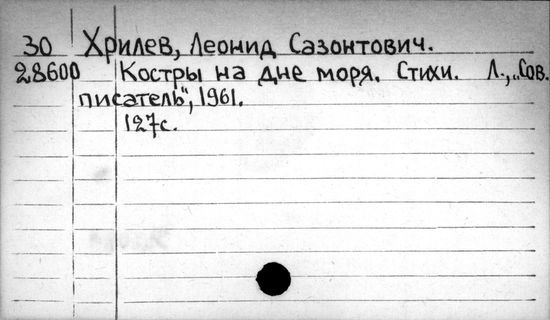 30 Хрилев, Леонид Сазонтович.
28600 Костры на дне моря. Стихи. Л., „Сов.
писатель", 1961.
127с.